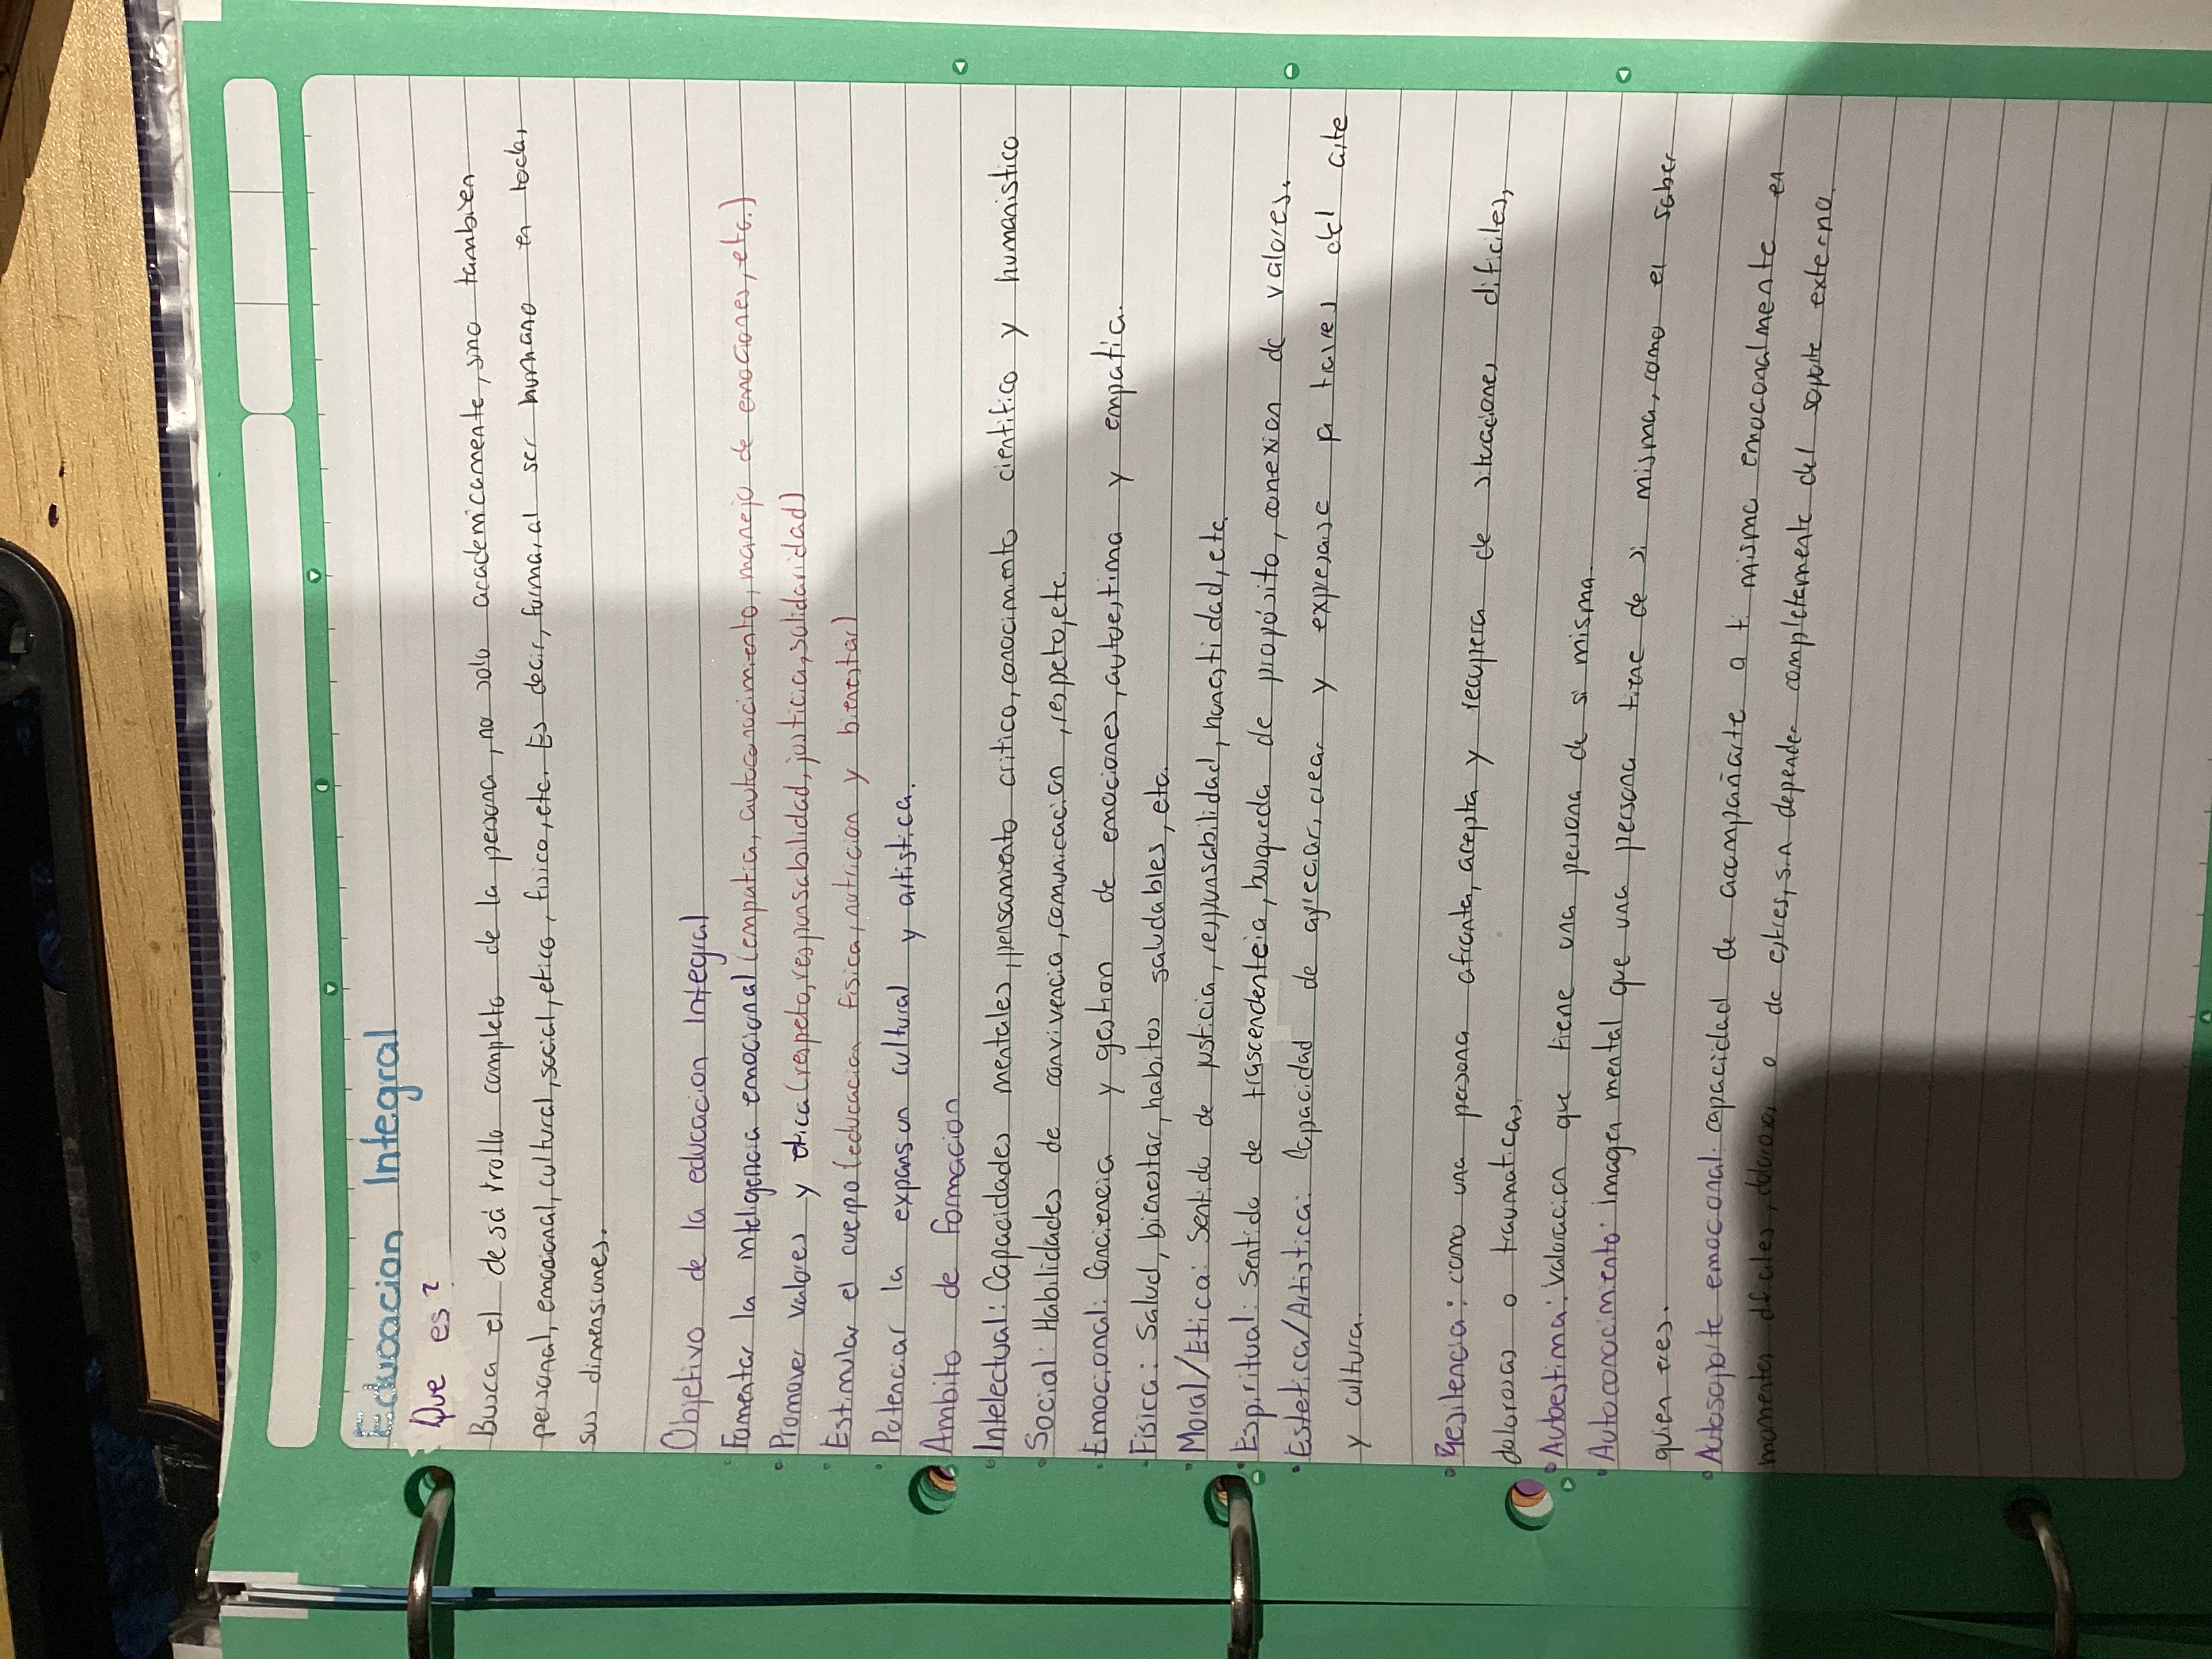 Educacion Integral
Que es?
Busca el desarrollo completo de la persona, no solo academicamente, sino tambien
personal, emocional, cultural, social, etico, fisico, etc. Es decir, formar al ser humano en todas
sus dimensiones.
Objetivo de la educacion Integral
• Fomentar la inteligencia emocional (empatia, autoconocimiento, manejo de emociones, etc.)
• Promover valores y etica (respeto, responsabilidad, justicia, solidaridad)
• Estimular el cuerpo (educacion fisica, nutricion y bienestar)
• Potenciar la expansion cultural y artistica.
Ambito de formacion
• Intelectual: Capacidades mentales, pensamiento critico, conocimiento cientifico y humanistico
• Social: Habilidades de convivencia, comunicacion, respeto, etc.
• Emocional: Conciencia y gestion de emociones, autoestima y empatia.
• Fisica: Salud, bienestar, habitos saludables, etc.
• Moral/Etica: Sentido de justicia, responsabilidad, honestidad, etc.
• Espiritual: Sentido de trascendenteia, busqueda de propósito, conexion de valores.
• Estetica/Artistica: Capacidad de apreciar, crear y expresarse a traves del arte
y cultura.
• Resilencia: como una persona afronta, acepta y recupera de situaciones dificiles,
dolorosas o traumaticas.
• Autoestima: Valoracion que tiene una persona de si misma.
• Autoconocimiento: Imagen mental que una persona tiene de si misma, como el saber
quien eres.
• Autosoporte emocional: capacidad de acompañarte a ti mismo emocionalmente en
momentos dificiles, dolorosos o de estres, sin depender completamente del soporte externo.